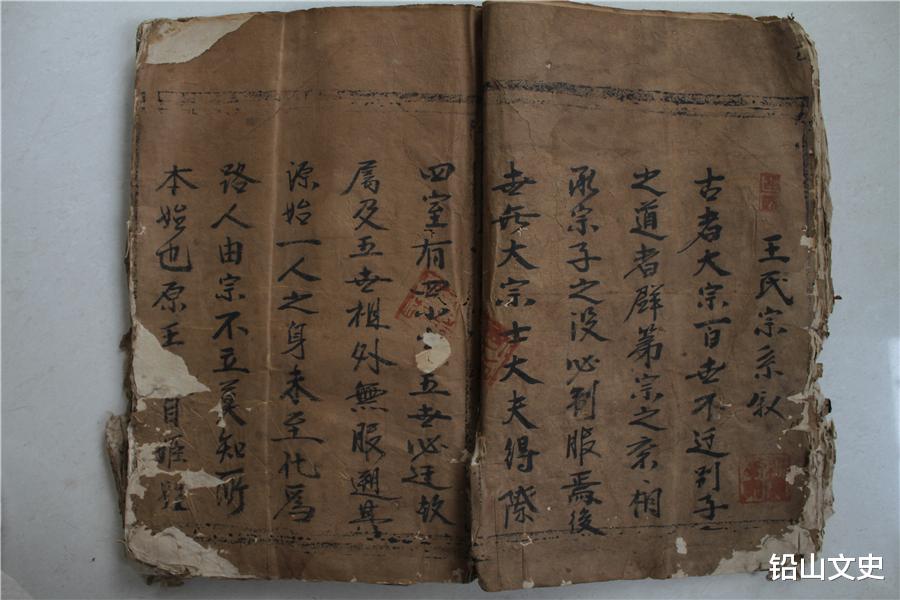 王氏宗系叙
古者大宗百世不迁别子
之道者群第宗之宗相
承宗子之没必制服焉後
世无大宗士大夫得際
四室有四小五世必迁故
属及五世祖外無服遡其
源始一人之身未至化爲
路人由宗不立莫知所
本始也原王自姬
铅山文史